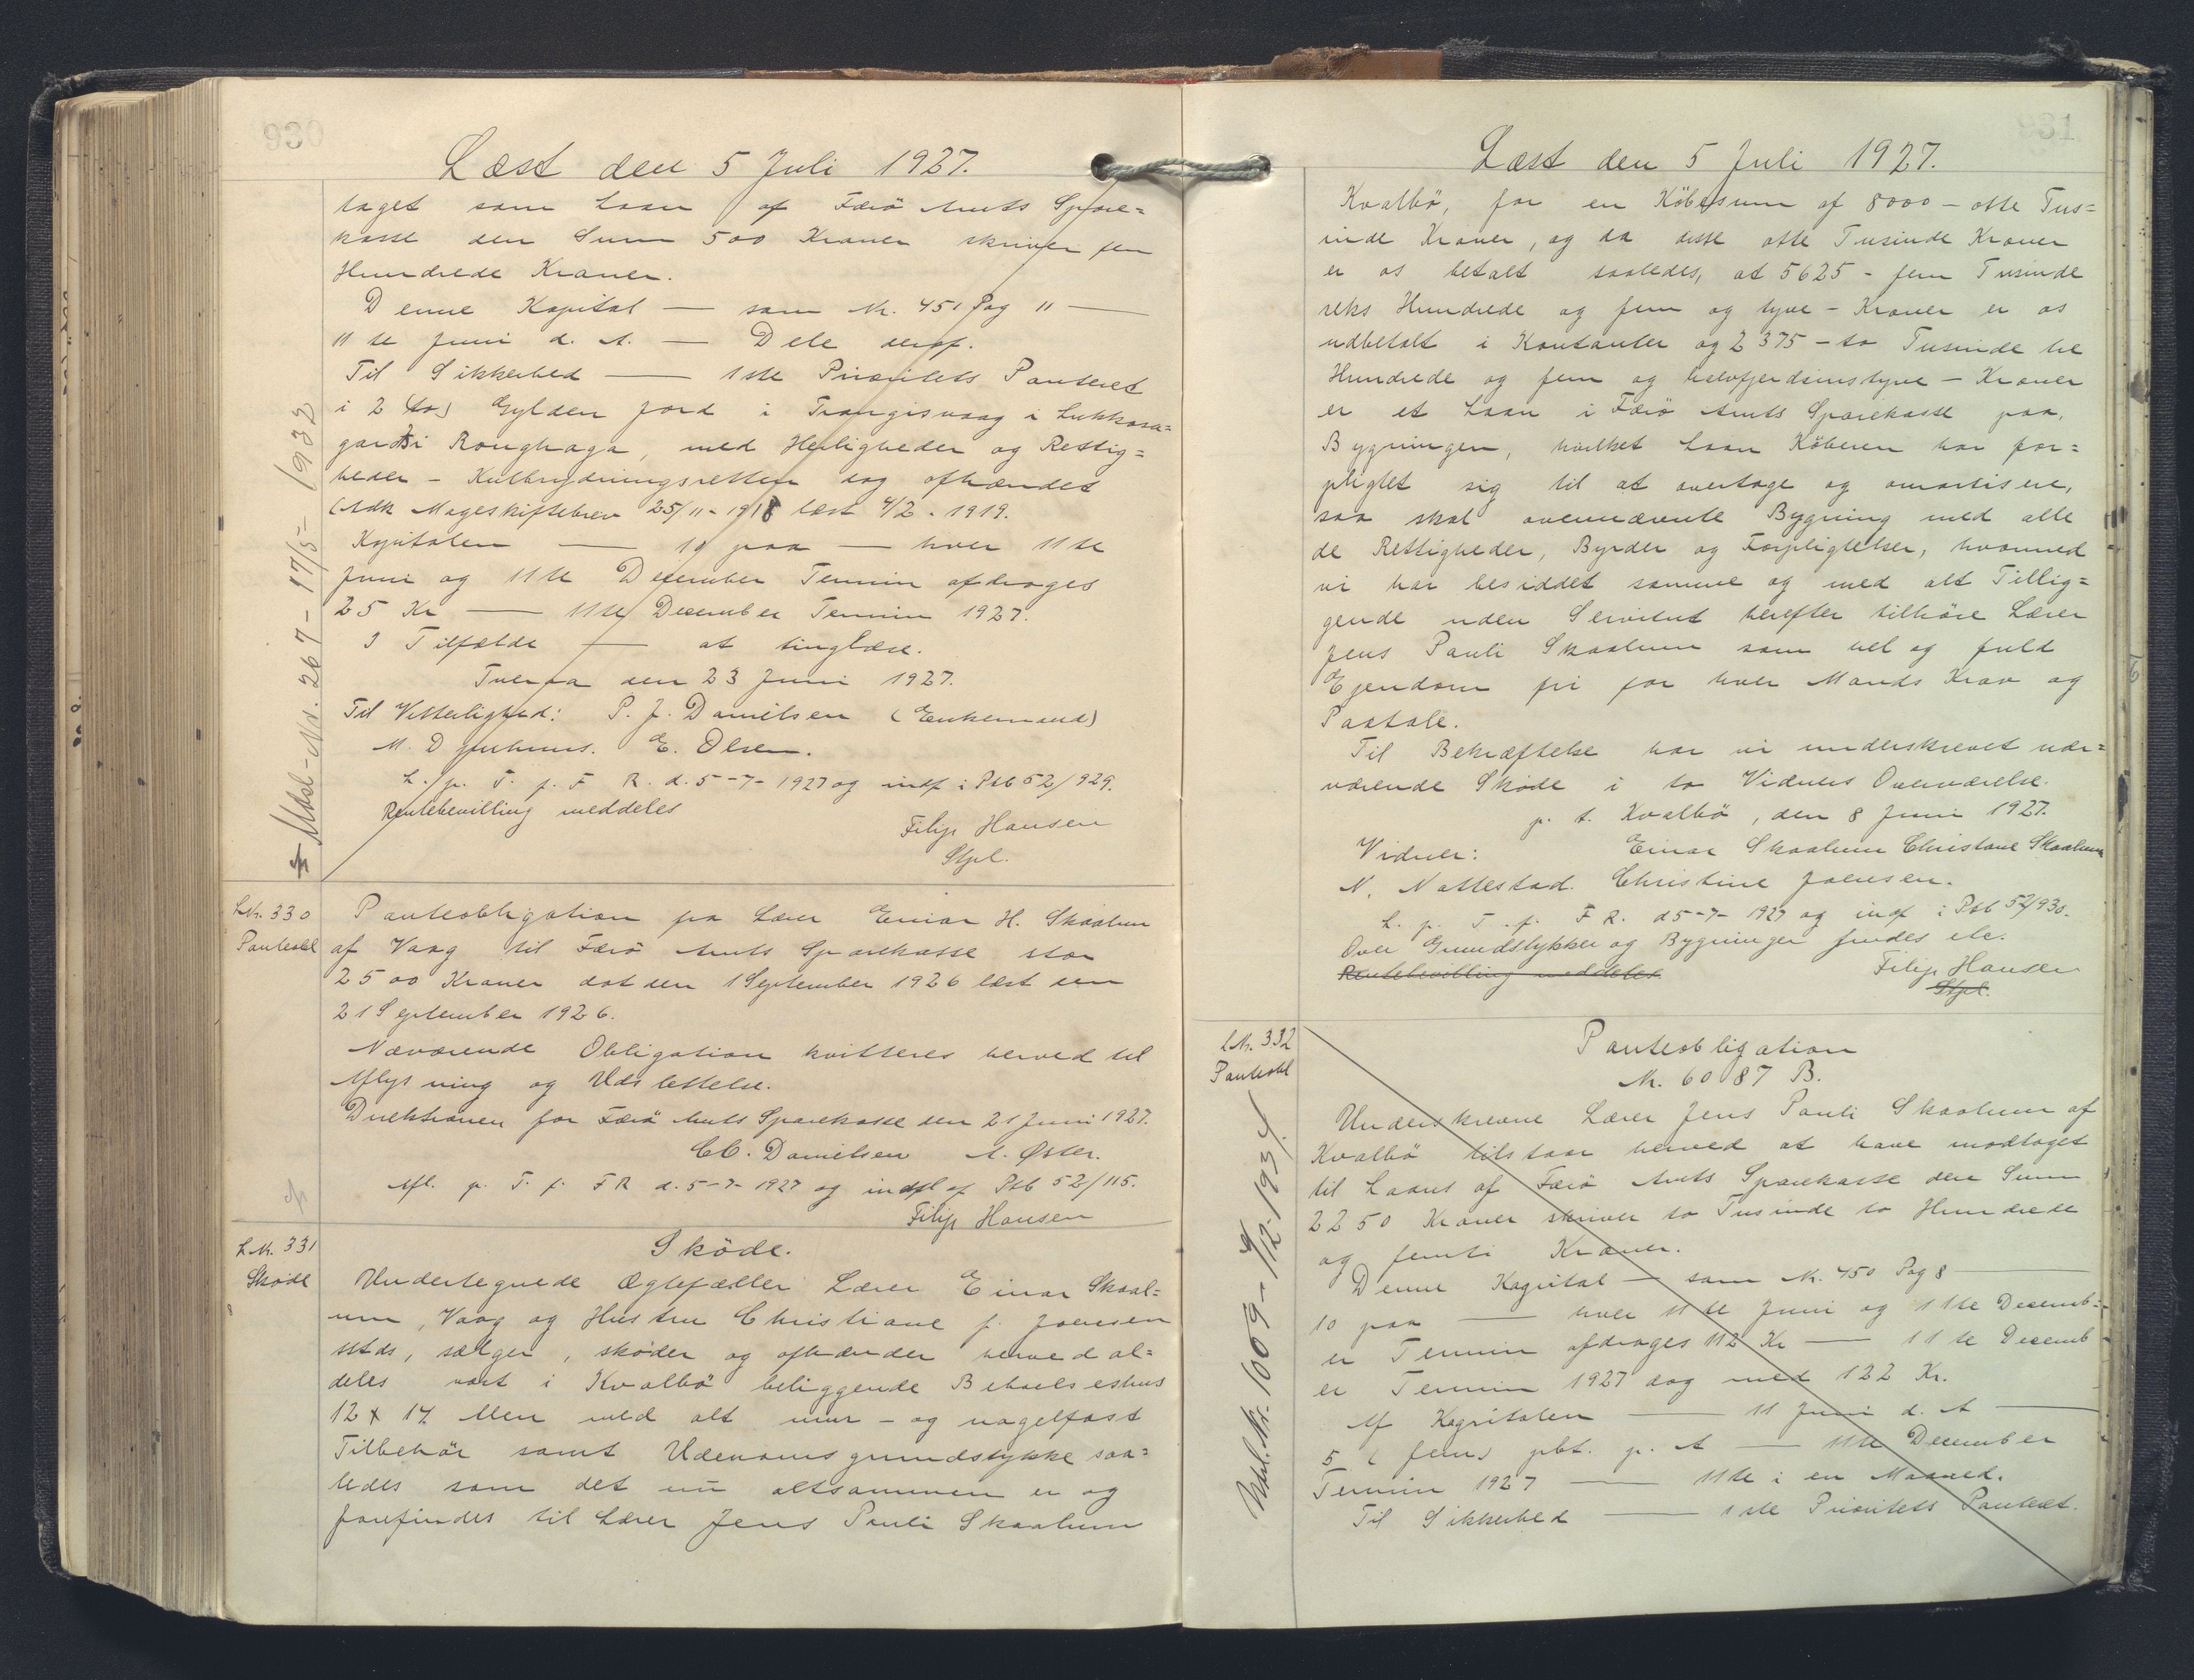 930
Læst den 5 Juli 1927.
taget som Laan af Færö Amts Spare=
kasse den Sum 500 Kroner skriver fem
Hundrede Kroner.
Denne Kapital — som Nr. 451 Pag 11 —
11te Juni d. A. — Dele deraf.
Til Sikkerhed — 1ste Prioritets Panteret
i 2 (to) Gylden Jord i Trangisvaag i Lukkara=
gardi Ronghaga, med Herligheder og Rettig=
heder - Kulbrydningsretten dog afhændet
(Adk Mageskiftebrev 25/11-1918 læst 4/2-1919.
Kapitalen — 10 paa — hver 11te
Juni og 11te December Termin afdrages
25 Kr — 11te December Termin 1927.
I Tilfælde — at tinglæse.
Tveraa den 23 Juni 1927.
Til Vitterlighed: P. J. Danielsen (Enkemand)
M. Djurhuus. E. Olsen.
L. p. T. f. F R. d. 5-7-1927 og indf i Ptb 52/929.
Rentebevilling meddeles
Filip Hansen
Stpl.
Udsl-Nr. 267-17/5-1932
LNr. 330
Panteobl
Panteobligation fra Lærer Einar H. Skaalum
af Vaag til Færö Amts Sparekasse stor
2500 Kroner dat den 1 September 1926 læst den
21 September 1926.
Nærværende Obligation kvitteres herved til
Aflysning og Udslettelse.
Direktionen for Færö Amts Sparekasse den 21 Juni 1927.
C.C. Danielsen A. Øster.
Afl. p. T. f. F R d. 5-7-1927 og indf af Ptb 52/115.
Filip Hansen
LNr. 331
Skøde
Sköde.
Undertegnede Ægtefæller Lærer Einar Skaal=
um, Vaag og Hustru Christiane f. Joensen
stds, sælger, skøder og afhænder herved al=
deles vort i Kvalbö beliggende Beboelseshus
12 x 14 Alen med alt mur- og nagelfast
Tilbehör samt Udenomsgrundstykke saa=
ledes som det nu altsammen er og
forefindes til Lærer Jens Pauli Skaalum
931
Læst den 5 Juli 1927.
Kvalbö, for en Købesum af 8000 - otte Tus=
inde Kroner, og da disse otte Tusinde Kroner
er os betalt saaledes, at 5625 - fem Tusinde
seks Hundrede og fem og tyve - Kroner er os
udbetalt i Kontanter og 2375 - to Tusinde tre
Hundrede og fem og halvfjerdsinstyve - Kroner
er et Laan i Færö Amts Sparekasse paa
Bygningen, hvilket Laan Køberen har for=
pligtet sig til at overtage og amortisere,
saa skal ovennævnte Bygning med alle
de Rettigheder, Byrder og Forpligtelser, hvormed
vi har besiddet samme og med alt Tillig=
gende uden Servitut herefter tilhöre Lærer
Jens Pauli Skaalum som vel og fuld
Ejendom fri for hver Mands Krav og
Paatale.
Til Bekræftelse har vi underskrevet nær=
værende Skøde i to Vidners Overværelse.
p. t. Kvalbö, den 8 Juni 1927.
Vidner: Einar Skaalum Christane Skaalum
N. Nattestad. Christine Joensen.
L. p. T. f. F R. d 5-7-1927 og indf i Ptb 52/930.
Over Grundstykker og Bygninger findes etc.
Rentebevilling meddeles
Filip Hansen
Stpl.
LNr. 332
Panteobl
Panteobligation
Nr. 6087 B.
Underskrevne Lærer Jens Pauli Skaalum af
Kvalbö tilstaar herved at have modtaget
til Laans af Færö Amts Sparekasse den Sum
2250 Kroner skriver to Tusinde to Hundrede
og femti Kroner.
Denne Kapital — som Nr. 450 Pag 8 —
10 paa — hver 11te Juni og 11te Decemb=
er Termin afdrages 112 Kr — 11te Decemb
er Termin 1927 dog med 122 Kr.
Af Kapitalen — 11 Juni d. A —
5 (fem) pct. p. A — 11te December
Termin 1927 — 11te i en Maaned.
Til Sikkerhed — 1ste Prioritets Panteret.
Udsl. Nr. 1009-9/12-1934.